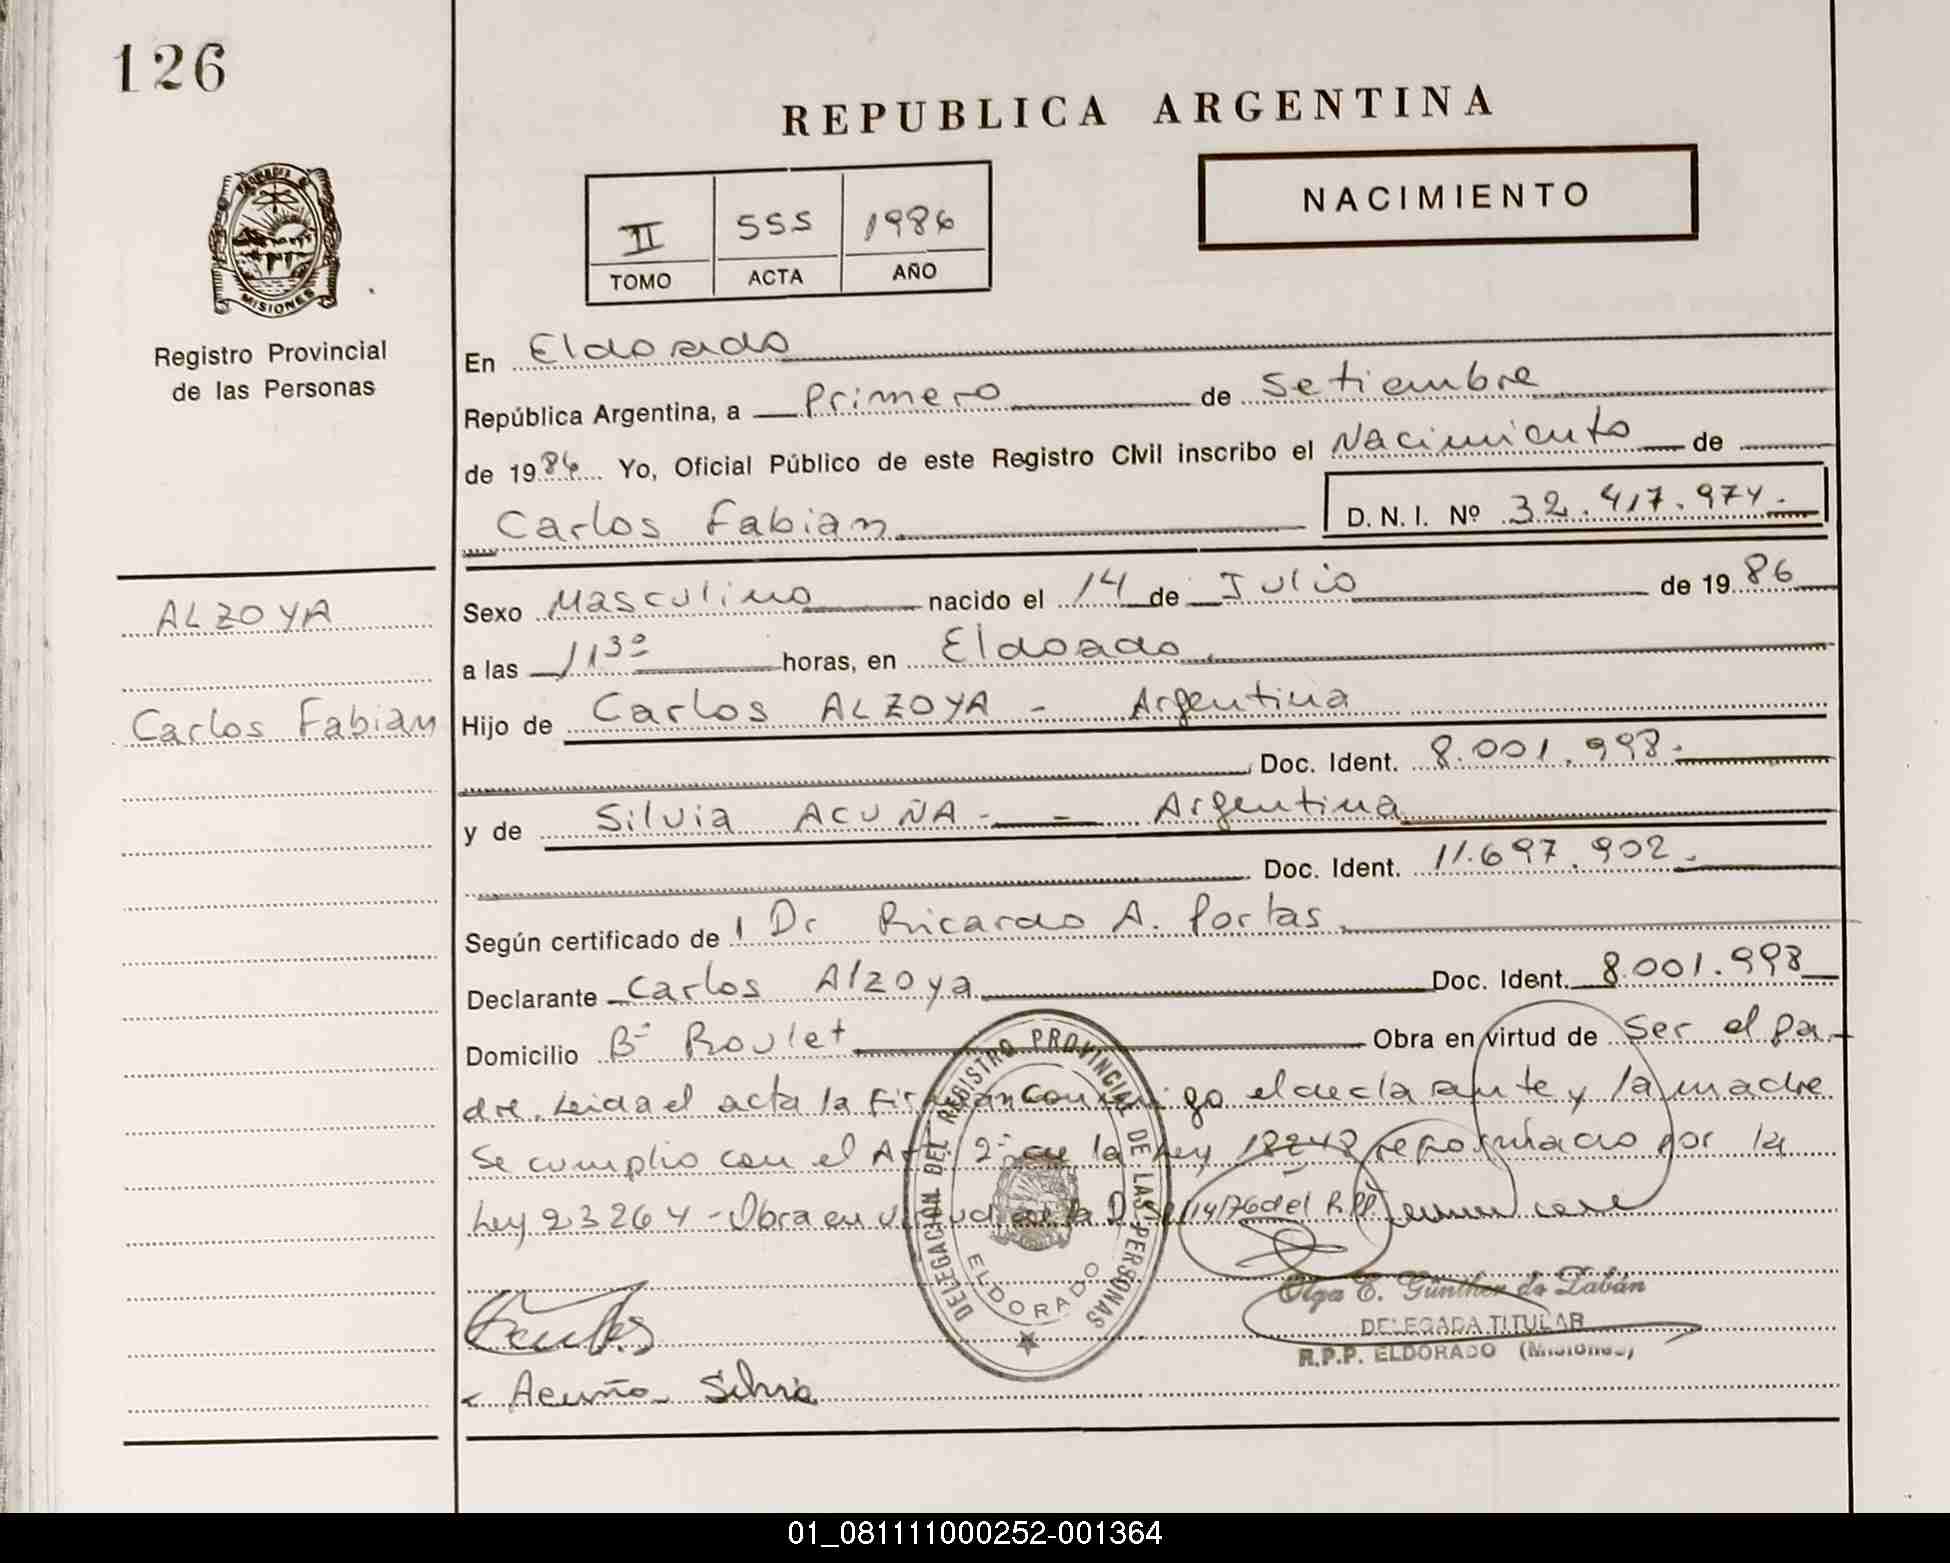 126
REPUBLICA ARGENTINA
NACIMIENTO
II 555 1986
TOMO ACTA AÑO
MISIONES
Registro Provincial
de las Personas
En Eldorado
República Argentina, a Primero de Setiembre
de 1986 Yo, Oficial Público de este Registro Civil inscribo el Nacimiento de
Carlos Fabian D.N.I. Nº 32.417.974.-
ALZOYA
Carlos Fabian
Sexo Masculino nacido el 14 de Julio de 1986
a las 11 30 horas, en Eldorado
Hijo de Carlos ALZOYA - Argentina
Doc. Ident. 8.001.998.-
y de Silvia ACUÑA - Argentina
Doc. Ident. 11.697.902.-
Según certificado de l Dr Ricardo A. Portas
Declarante Carlos Alzoya Doc. Ident. 8.001.998
Domicilio Bº Roulet Obra en virtud de Ser el pa-
dre. Leida el acta la Firman conmigo el declarante y la madre.
Se cumplio con el Art 2º de la Ley 18248 reformado por la
Ley 23264 - Obra en virtud de la 14/76 del R.PP.
DELEGACION DEL REGISTRO PROVINCIAL DE LAS PERSONAS
ELDORADO
Olga E. Günther de Zabán
DELEGADA TITULAR
R.P.P. ELDORADO (Misiones)
Acuña Silvia
01_081111000252-001364